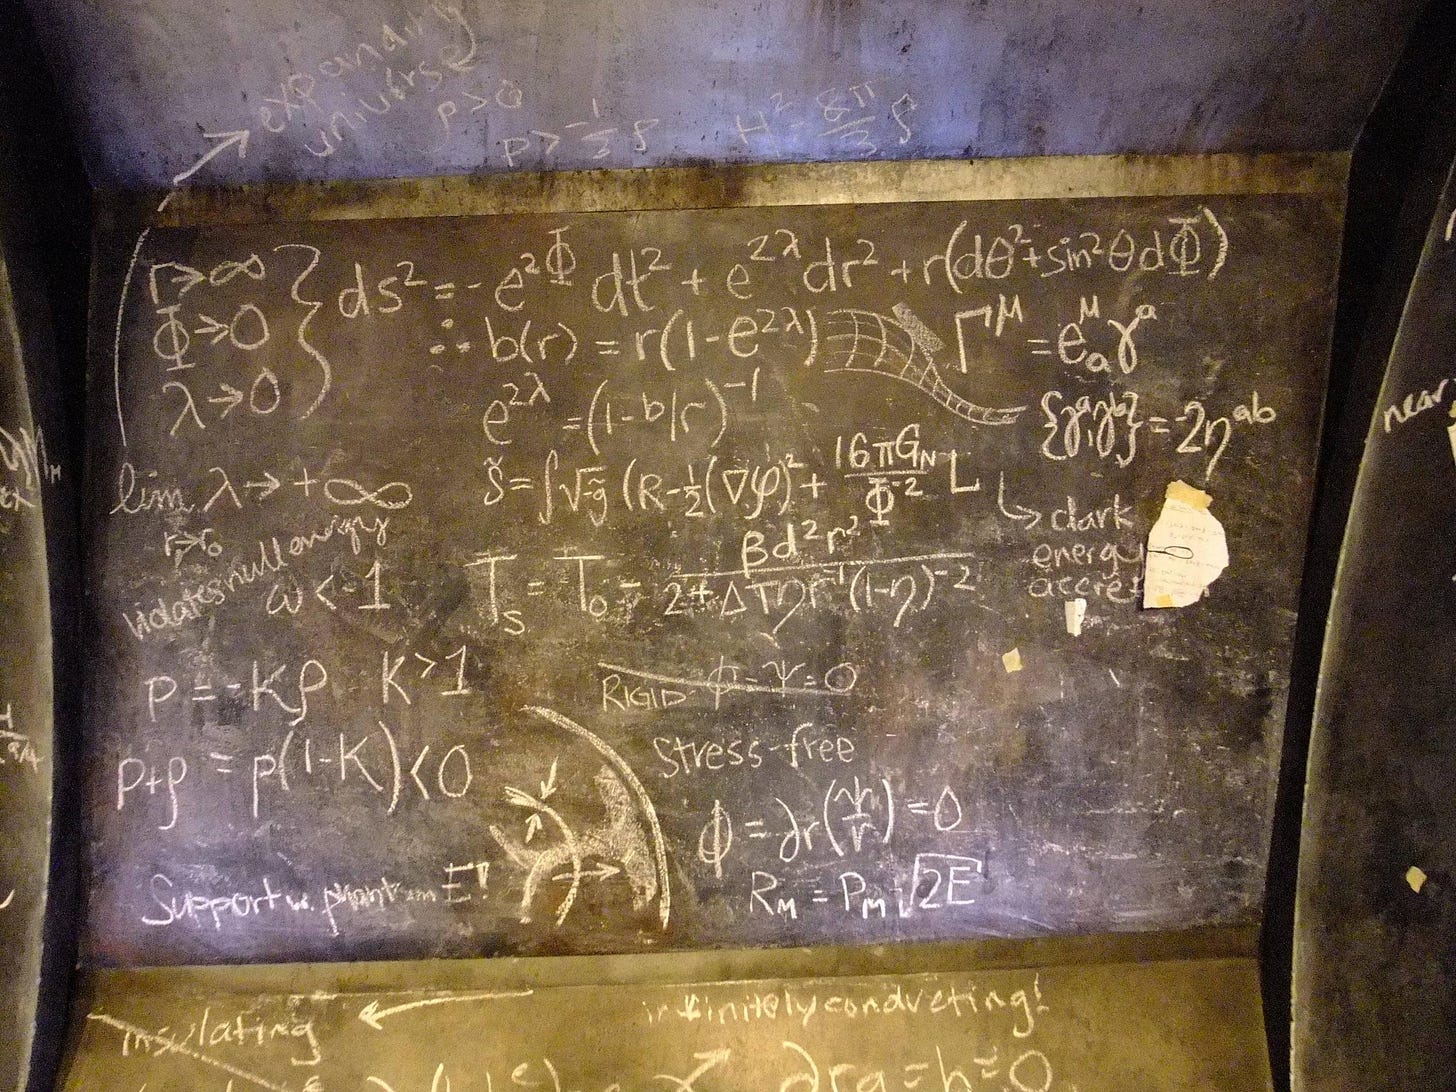 expanding
universe
ρ>0
p > -1/3 ρ
H² = 8π/3 ρ
r→∞
Φ→0
λ→0
ds² = - e^2Φ dt² + e^2λ dr² + r(dθ² + sin²θ dΦ)
∴ b(r) = r(1-e^2λ)
Γ^μ = e^μ_a γ^a
e^2λ = (1-b/r)^-1
{γ^a, γ^b} = 2η^ab
lim λ→+∞
r→r₀
S̃ = ∫√-g̃ (R-½(∇φ)² + 16πG_N/Φ^-2 L
→ dark
energy
accret
violates null energy
ω < 1
T_s = T_0 - βd²r²/2+ΔTηr^-1(1-η)^-2
p = -Kρ K>1
RIGID φ=Ψ=0
p+ρ = p(1-K)<0
Stress-free
φ = ∂r(ψ/r) = 0
Support w. phantom E!
R_M = P_M √2E
near
insulating
infinitely conducting!